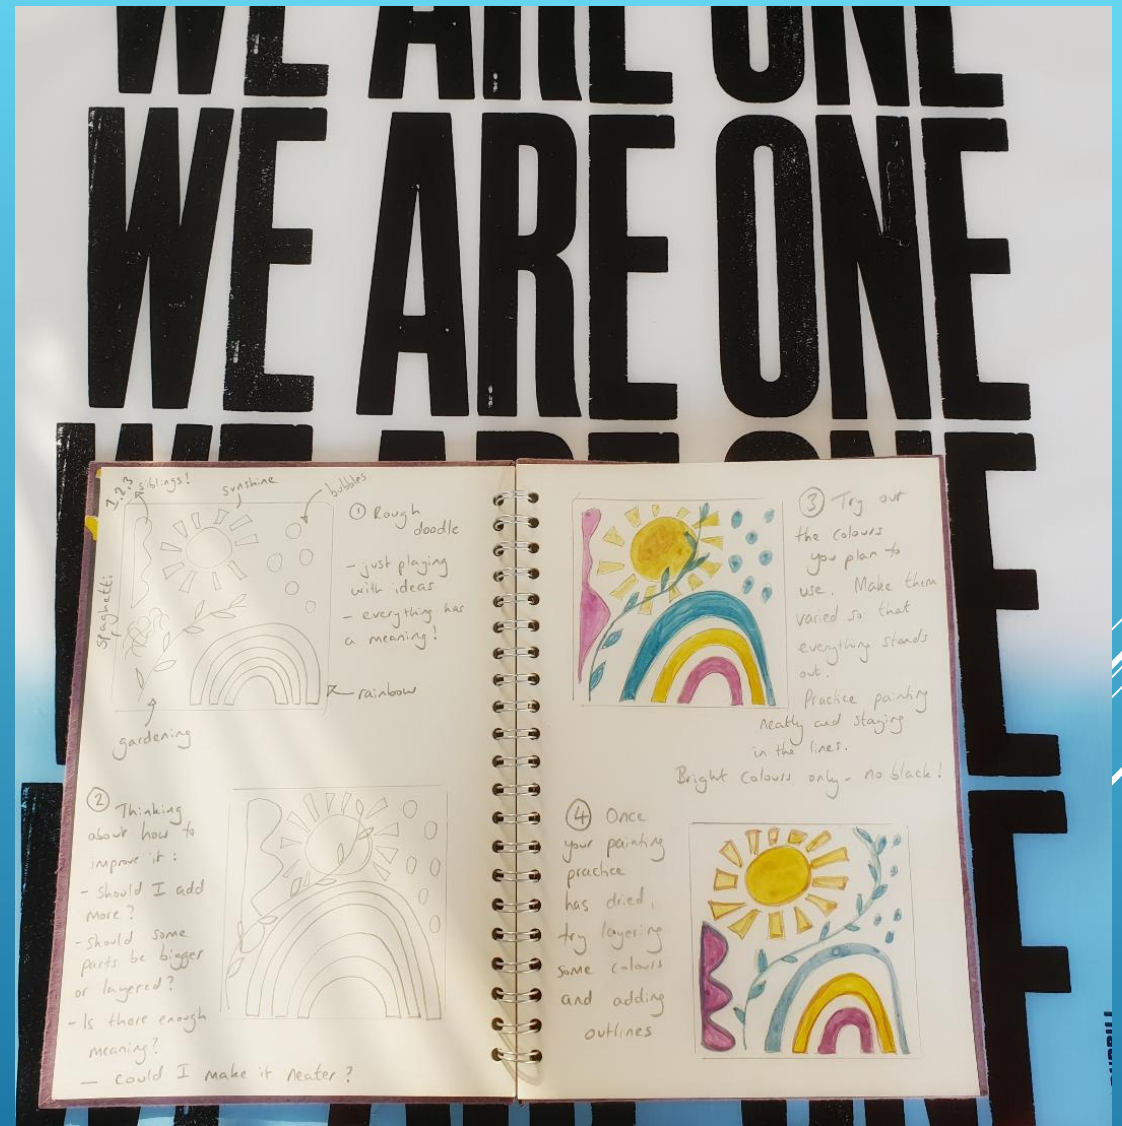 WE ARE ONE
WE ARE ONE
WE ARE ONE
1.2.3
siblings!
sunshine
bubbles
spaghetti
gardening
rainbow
① Rough
doodle
- just playing
with ideas
- everything has
a meaning!
② Thinking
about how to
improve it:
- Should I add
more?
- Should some
parts be bigger
or layered?
- Is there enough
meaning?
- Could I make it neater?
③ Try out
the colours
you plan to
use. Make them
varied so that
everything stands
out.
Practice painting
neatly and staying
in the lines.
Bright colours only - no black!
④ Once
your painting
practice
has dried,
try layering
some colours
and adding
outlines